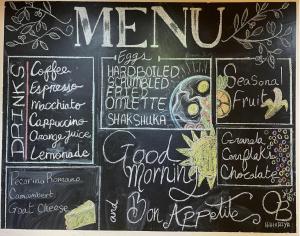 MENU
DRINKS
Coffee
Espresso
Mocchiato
Cappuccino
Orange Juice
Lemonade
Eggs
HARDBOILED
SCRAMBLED
FRIED
OMLETTE
SHAKSHUKA
Seasonal
Fruit
Granola
Cornflakes
Chocolate
Pecorino Romano
Camambert
Goat Cheese
Good
Morning
and Bon Appetite